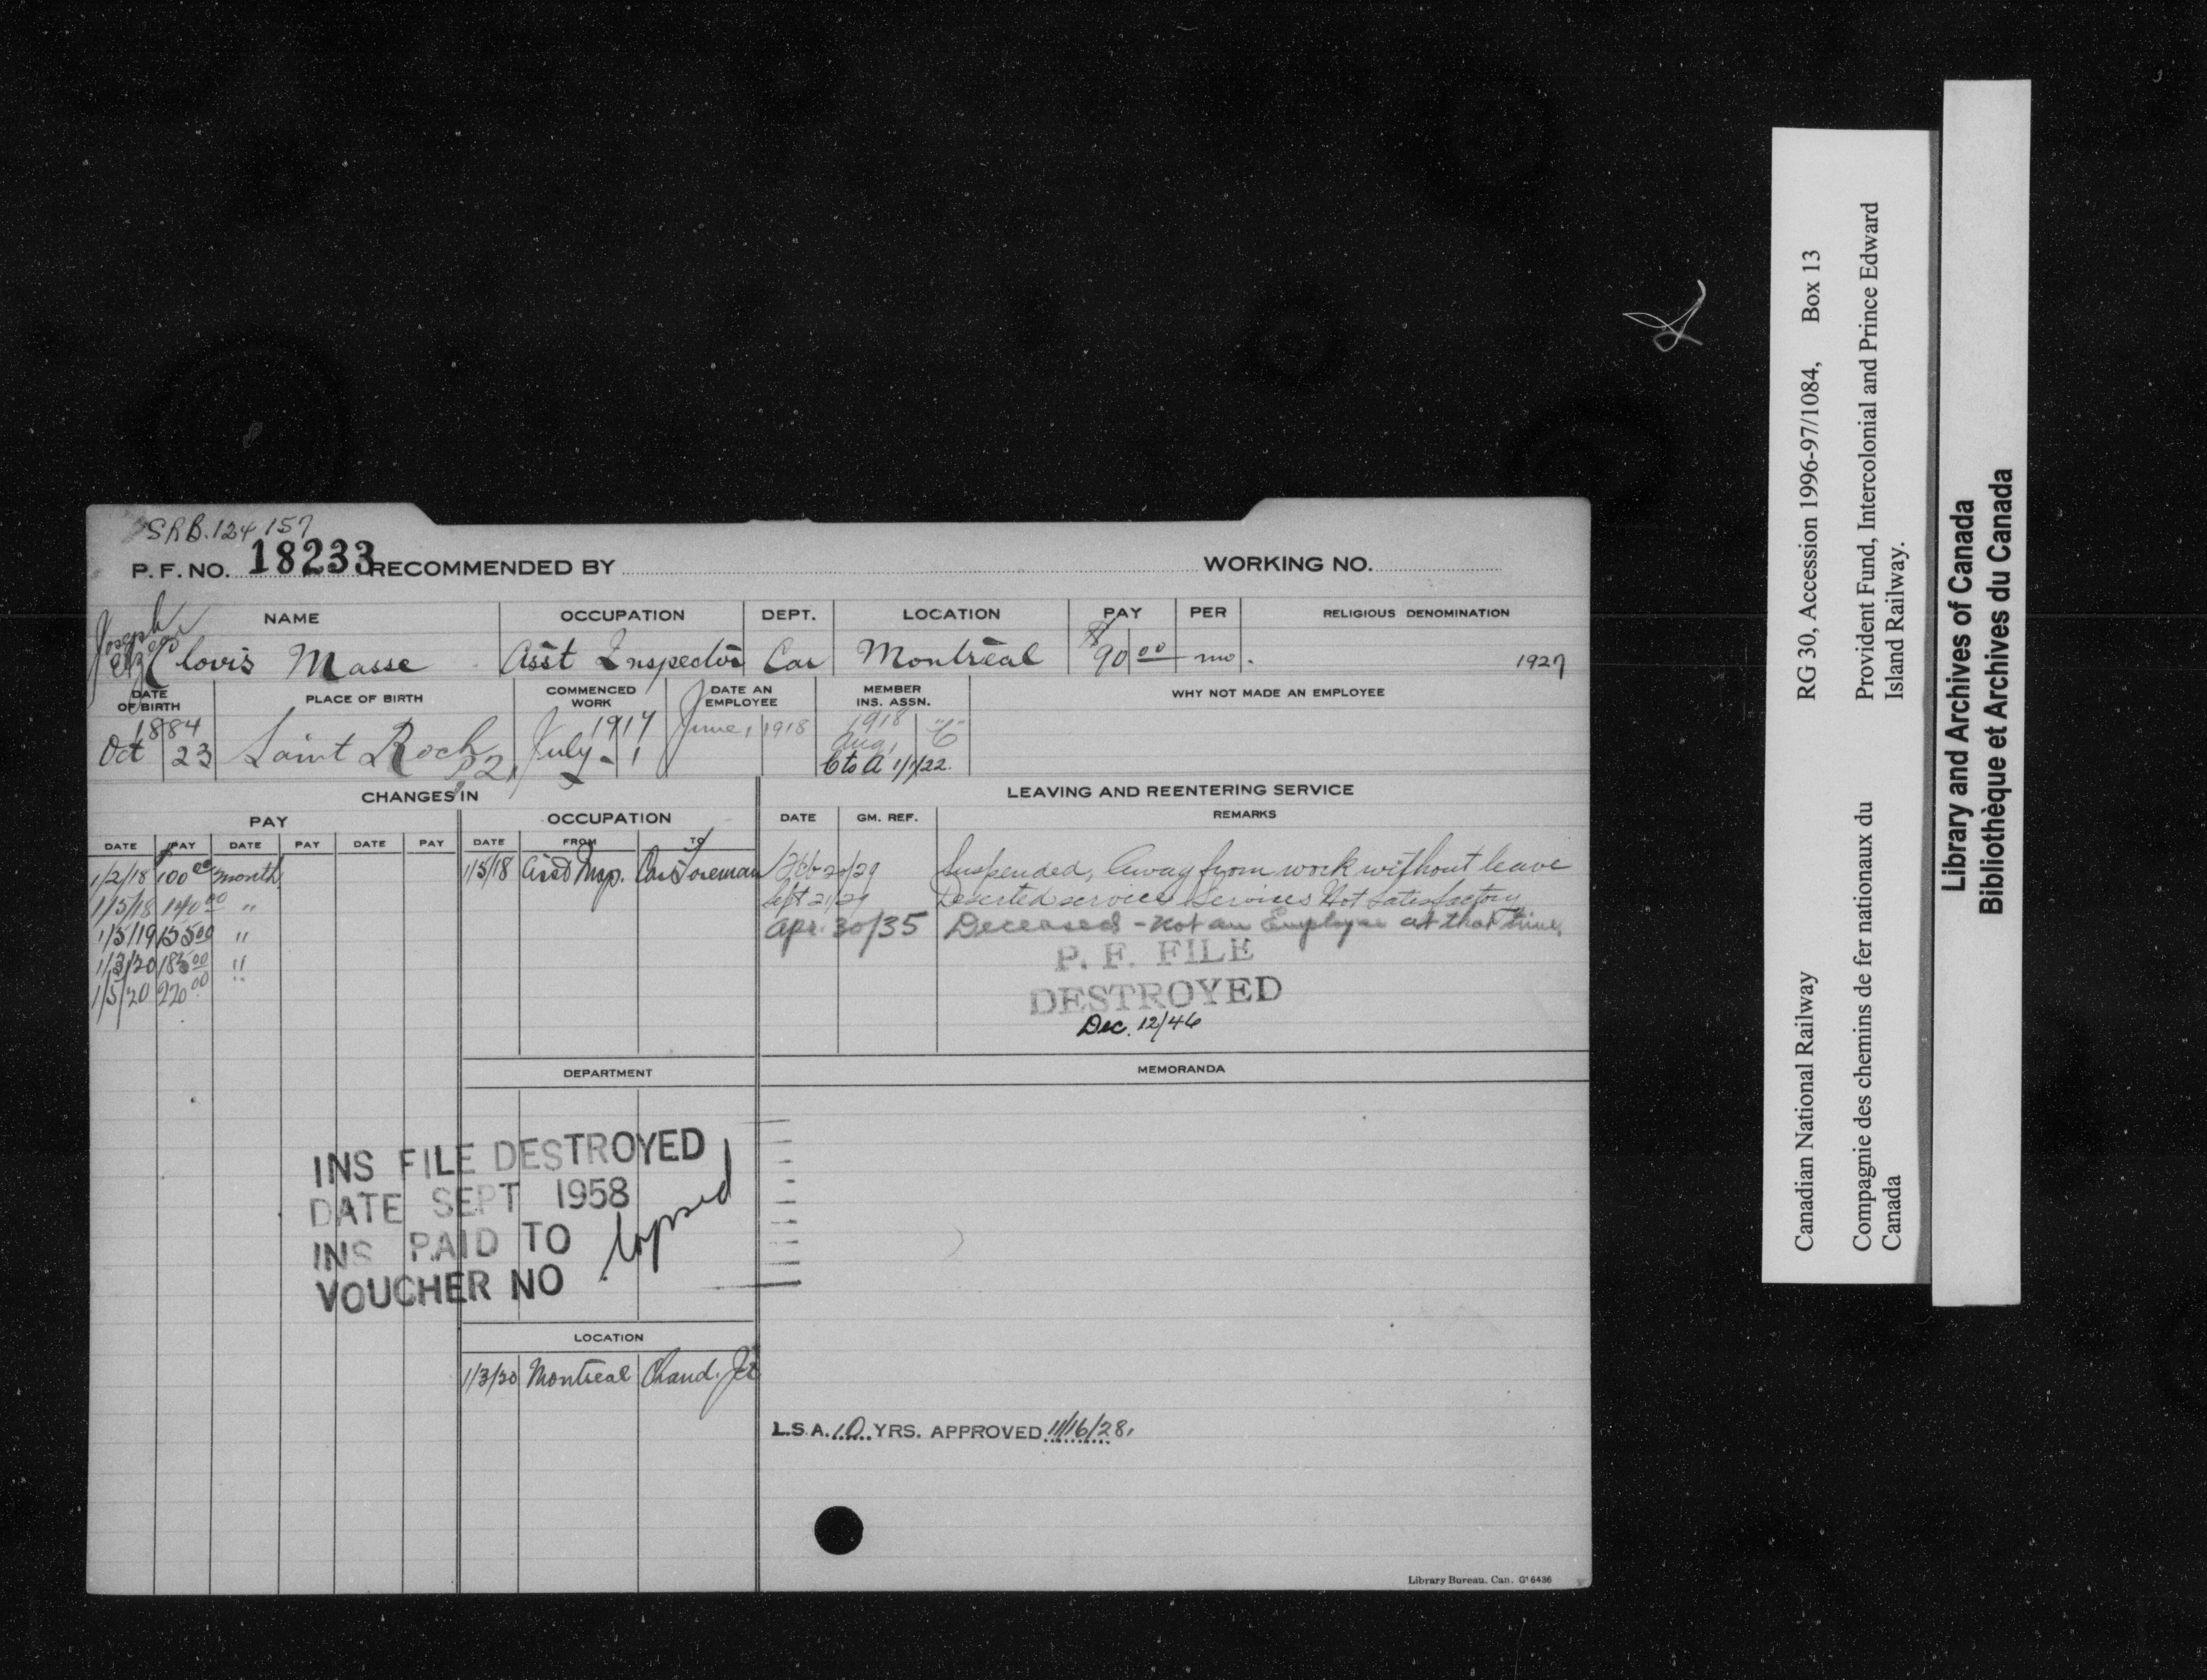 SRB. 124 157
P. F. NO. 18233 RECOMMENDED BY WORKING NO.
NAME OCCUPATION DEPT. LOCATION PAY PER RELIGIOUS DENOMINATION
Joseph
Clovis Masse Asst Inspector Car Montreal $90 00 mo. 1927
DATE OF BIRTH PLACE OF BIRTH COMMENCED WORK DATE AN EMPLOYEE MEMBER INS. ASSN. WHY NOT MADE AN EMPLOYEE
1884 1917 1918 "C"
Oct 23 Saint Roch July 1 June 1 1918 Aug 1
P.Q. C to A 1/1/22.
CHANGES IN LEAVING AND REENTERING SERVICE
PAY OCCUPATION DATE GM. REF. REMARKS
DATE PAY DATE PAY DATE PAY DATE FROM TO
1/2/18 100 00 month 1/5/18 Asst Insp. Car Foreman Feb 20/29 Suspended, Away from work without leave
1/5/18 140 00 " Sept 21/29 Deserted service Services Not Satisfactory
1/5/19 155 00 " Apr. 30/35 Deceased - Not an Employee at that time.
1/3/20 185 00 "
1/5/20 220 00 "
P. F. FILE
DESTROYED
Dec. 12/46
DEPARTMENT MEMORANDA
INS FILE DESTROYED
DATE SEPT 1958
INS PAID TO lapsed
VOUCHER NO
LOCATION
1/3/20 Montreal Chaud. Jct
L.S.A. 10 YRS. APPROVED 11/16/28.
Library Bureau. Can. G' 6436
Canadian National Railway RG 30, Accession 1996-97/1084, Box 13
Compagnie des chemins de fer nationaux du Canada
Provident Fund, Intercolonial and Prince Edward Island Railway.
Library and Archives of Canada
Bibliothèque et Archives du Canada